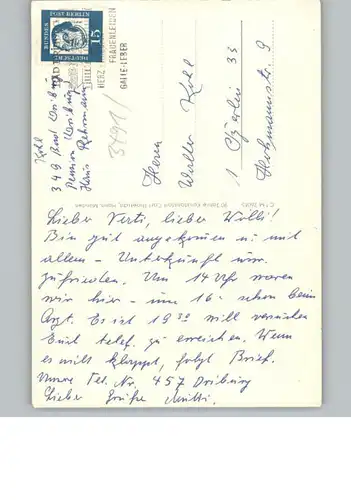 DEUTSCHE
BUNDESPOST BERLIN
15
HERZ
FRAUENLEIDEN
GALLE-LEBER
3491/
Kohl
349 Bad Driburg
Pension
Haus
Herrn
Walter Kohl
1 Berlin 33
9
Lieber Verti, lieber Willi!
Bin gut angekommen u. mit
allem – Unterkunft usw.
zufrieden. Um 14 Uhr waren
wir hier – um 16- schon beim
Arzt. Es ist 19³⁰ will versuchen
Euch telef. zu erreichen. Wenn
es nicht klappt, folgt Brief.
Unsere Tel. Nr. 457 Driburg
Lieber Grüße Mutti.